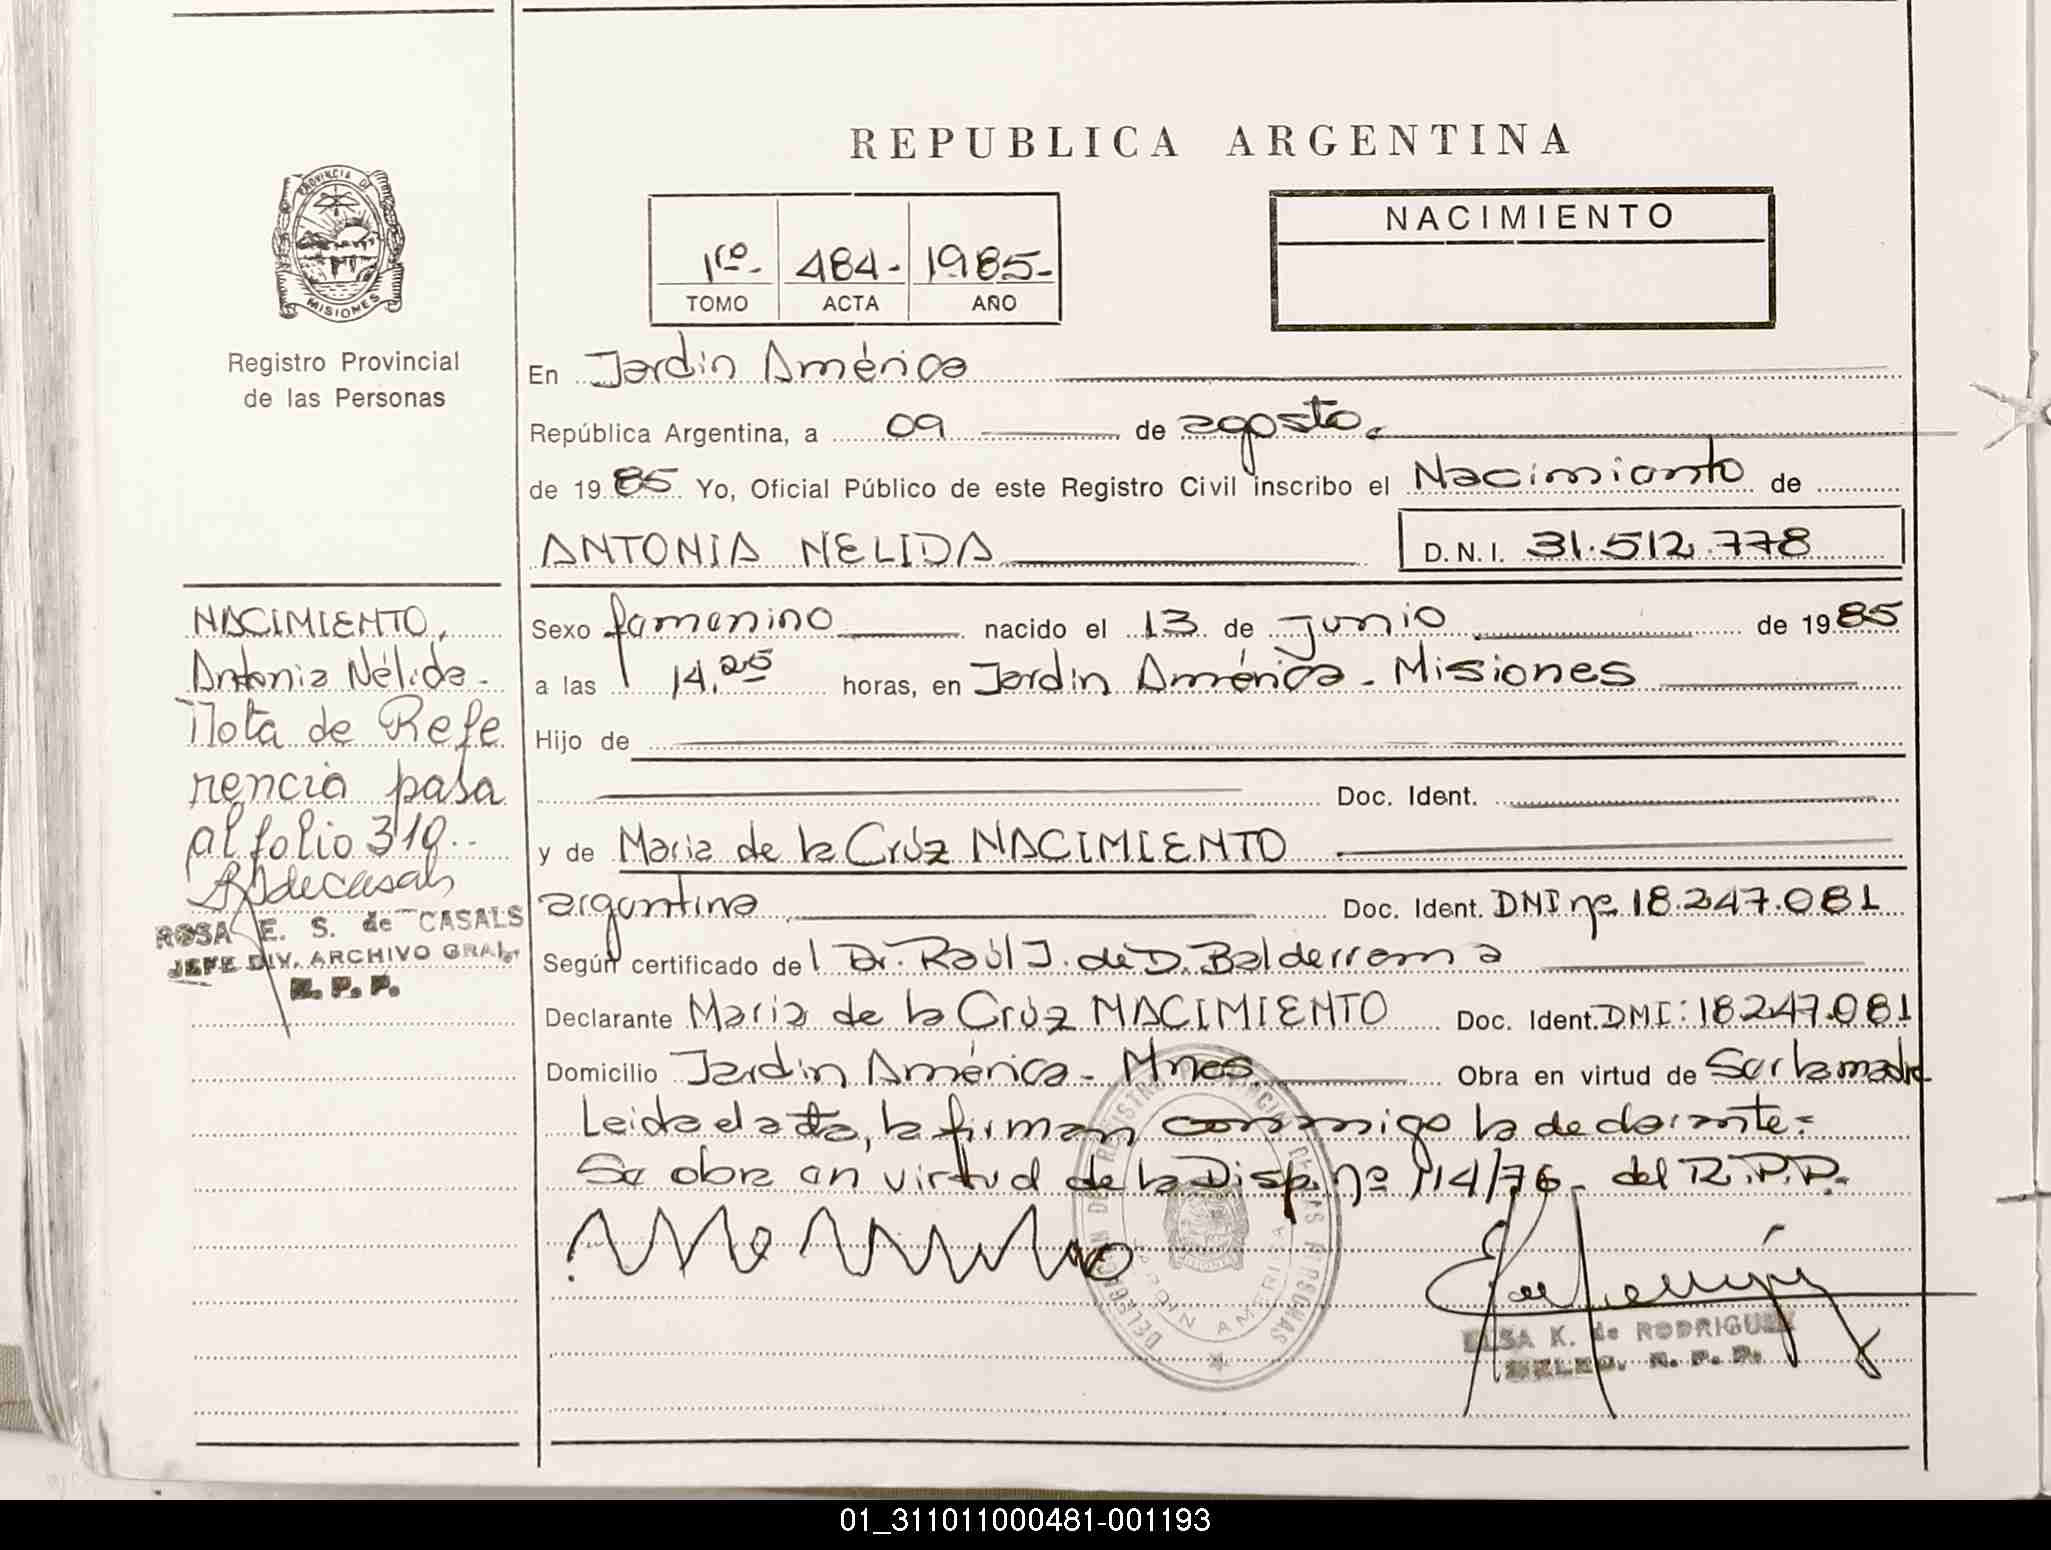 REPUBLICA ARGENTINA
PROVINCIA DE
MISIONES
Registro Provincial
de las Personas
1ro.- 484- 1985-
TOMO ACTA AÑO
NACIMIENTO
En Jardin América
República Argentina, a 09 de agosto.
de 1985 Yo, Oficial Público de este Registro Civil inscribo el Nacimiento de
ANTONIA NELIDA D.N.I. 31.512.778
NACIMIENTO,
Antonia Nélida.-
Nota de Refe
rencia pasa
al folio 310..
ROSA E. S. de CASALS
JEFE DIV. ARCHIVO GRAL.
R. P. P.
Sexo femenino nacido el 13 de junio de 1985
a las 14,25 horas, en Jardin América - Misiones
Hijo de
Doc. Ident.
y de Maria de la Crúz NACIMIENTO
argentina Doc. Ident. DNI nº 18.247.081
Según certificado del Dr. Raúl J. de D. Balderrama
Declarante Maria de la Crúz NACIMIENTO Doc. Ident. DNI: 18.247.081
Domicilio Jardin América - Mnes. Obra en virtud de Ser la madre
Leida el acta, la firman conmigo la declarante=
Se obra en virtud de la Disp. nº 114/76- del R.P.P.-
DELEGACION DE REGISTRO PROVINCIAL DE LAS PERSONAS
JARDIN AMERICA
ELSA K. de RODRIGUEZ
DELEG. R. P. P.
01_311011000481-001193